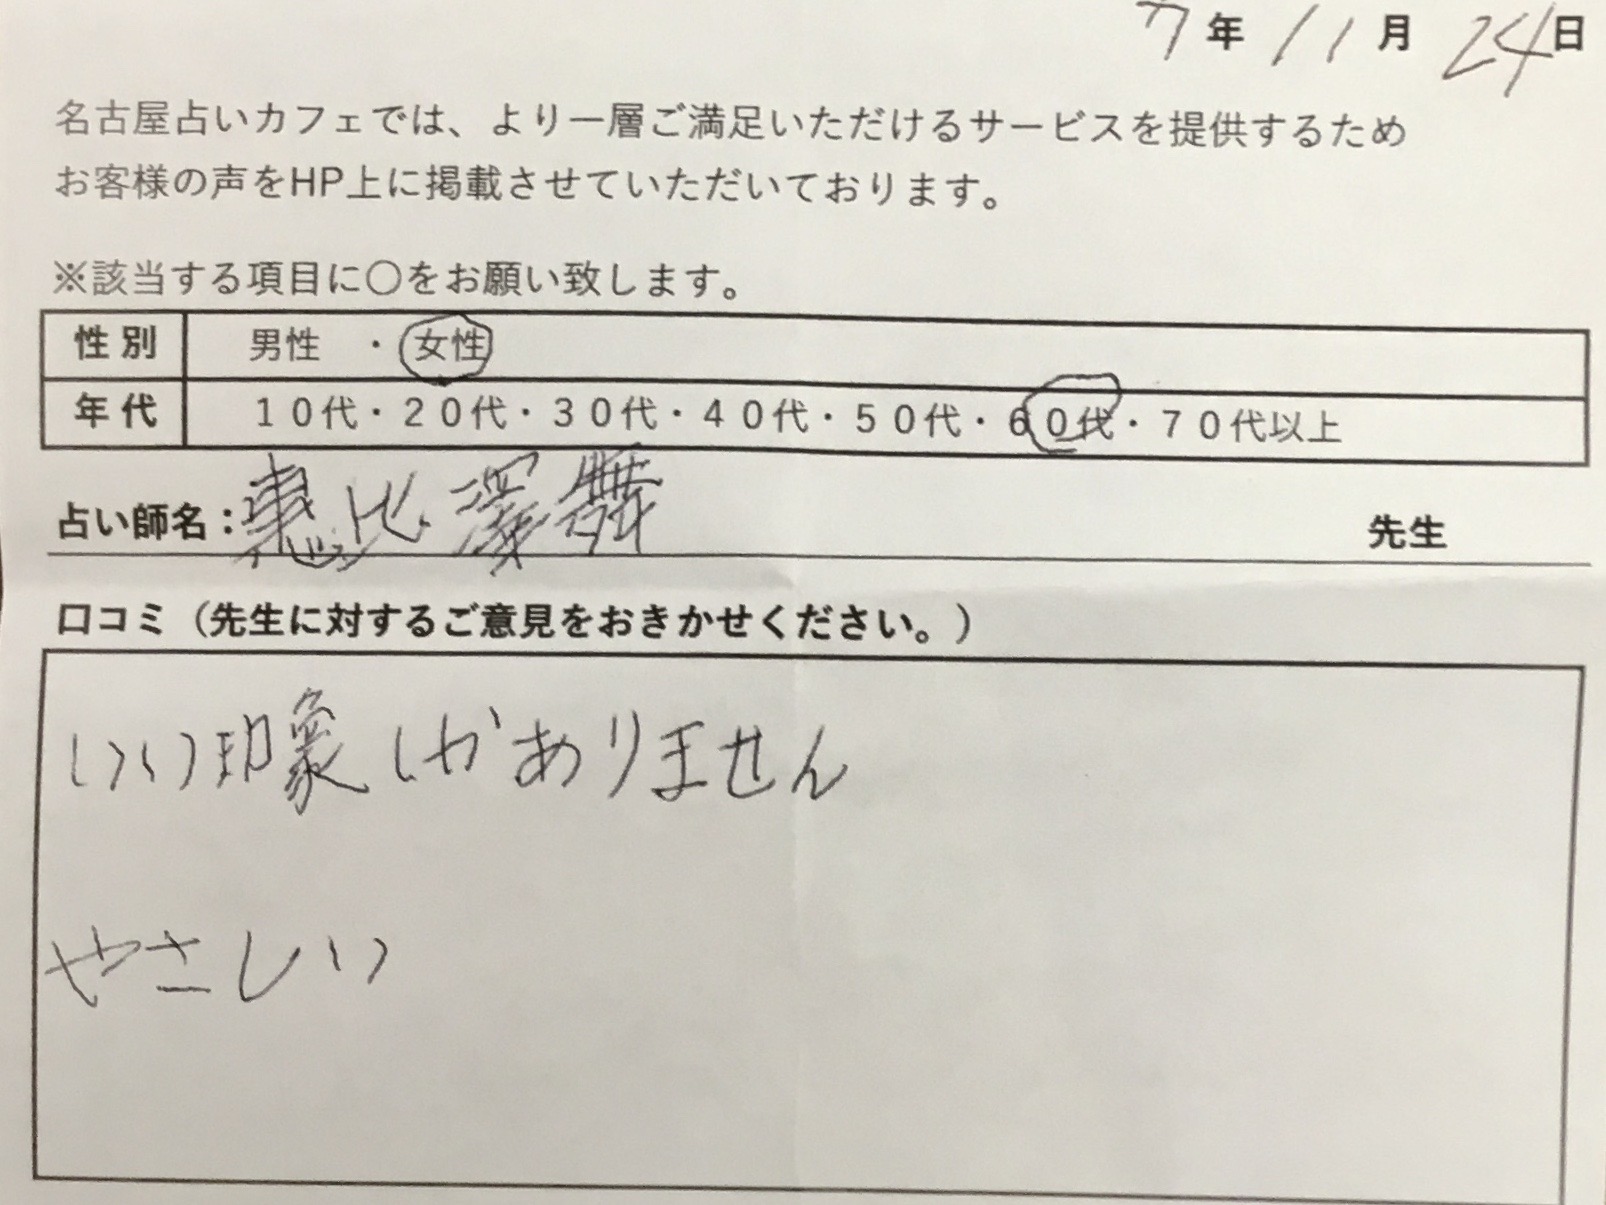 7年11月24日
名古屋占いカフェでは、より一層ご満足いただけるサービスを提供するため
お客様の声をHP上に掲載させていただいております。
※該当する項目に〇をお願い致します。
性別 男性 ・ 女性
年代 10代・20代・30代・40代・50代・60代・70代以上
占い師名：恵比澤舞 先生
口コミ（先生に対するご意見をおきかせください。）
いい印象しかありません
やさしい